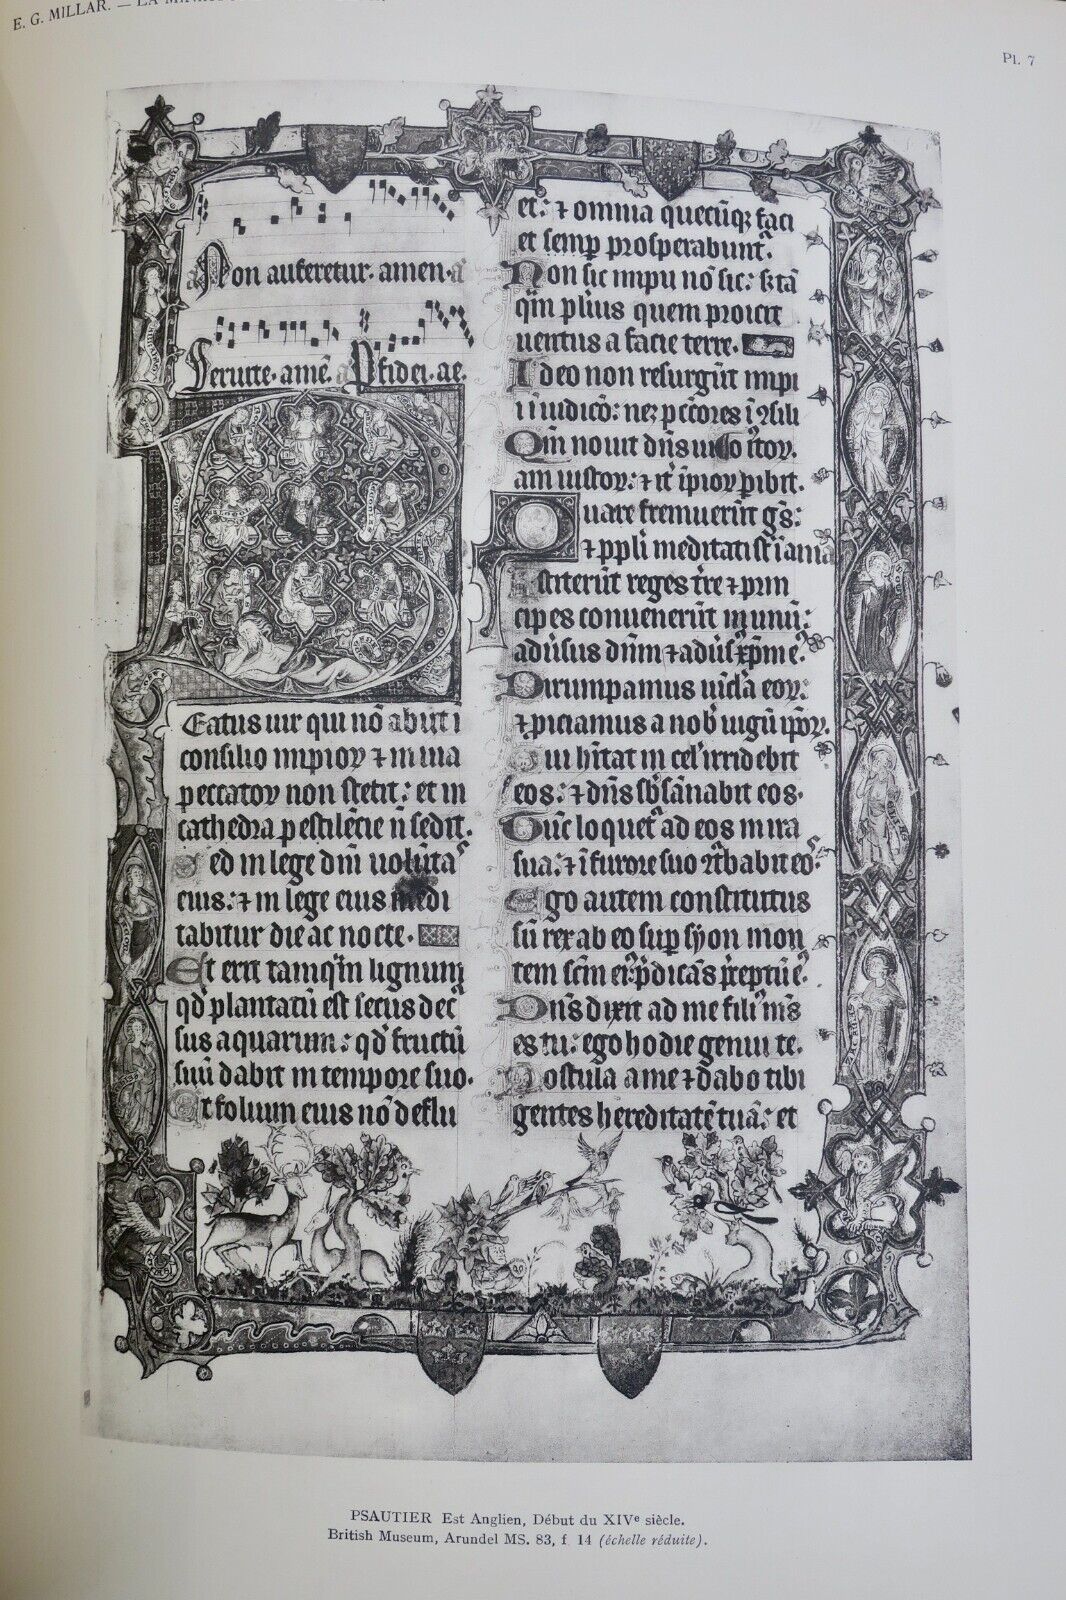 E. G. MILLAR. — LA
Pl. 7
Non auferetur. amen. a
Seruite. amē. Pfidei. ae.
Eatus uir qui nō abiit i
consilio impioꝝ ⁊ in uia
peccatoꝝ non stetit: et in
cathedra pestilēcie ñ sedit.
Sed in lege dm̄ uolūtaˢ
eius: ⁊ in lege eius medi
tabitur die ac nocte.
Et erit tamq̄m lignum
qd̓ plantatū est secus decˢ
sus aquarum: qd̓ fructū
suū dabit in tempore suo.
Et folium eius nō deflu
et: ⁊ omnia quecūqꝫ faci
et semꝑ prosperabuntᷣ.
Non sic impii nō sic: s; tā
q̄m pluis quem proicit
uentus a facie terre.
Ideo non resurgūt impi
i ī iudicō: neꝫ pctores ī ꝯsili
Qm̄ nouit dn̄s uiā
am iustoꝝ: ⁊ it̓ īpioꝝ ꝑibit.
Quare fremuerūt gn̄s:
⁊ ppl̓i meditati st̄ inania
Astiterūt reges tr̄e ⁊ prin
cipes conuenerūt in unū:
adūsus dn̄m ⁊ adūs xp̄m eˢ.
Dirumpamus uīcl̓a eoꝝ:
⁊ piciamus a nob̓ iugū ip̄oꝝ.
Qui hītat in cel̓ irridebit
eos: ⁊ dn̄s sb̄sānabit eos.
Tūc loquetᷣ ad eos in ira
sua: ⁊ ī furore suo ꝯt̓babit eoˢ.
Ego autem constitutus
sū rex ab eo suꝑ syon mon
tem scm̄ eiˢ p̄dicās p̄ceptū eˢ.
Dn̄s dixit ad me filiˢ mˢ
es tu: ego hodie genui te.
Postula a me ⁊ dabo tibi
gentes hereditatē tuā: et
PSAUTIER Est Anglien, Début du XIVe siècle.
British Museum, Arundel MS. 83, f. 14 (échelle réduite).